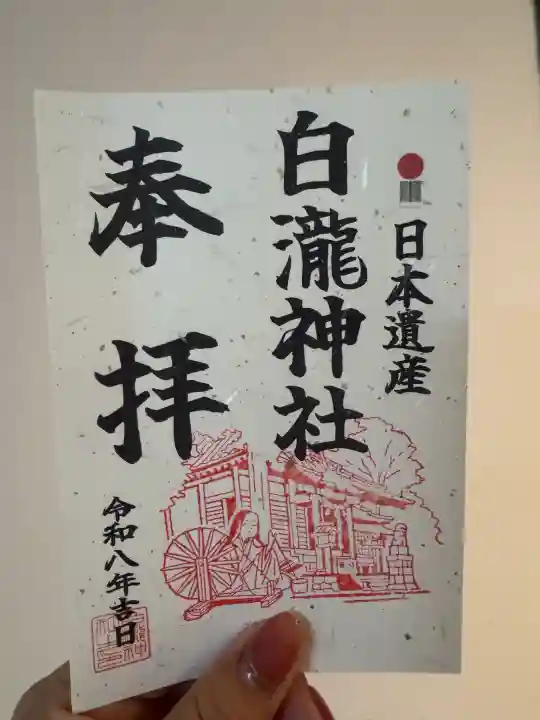 日本遺産
白瀧神社
奉拝
令和八年吉日